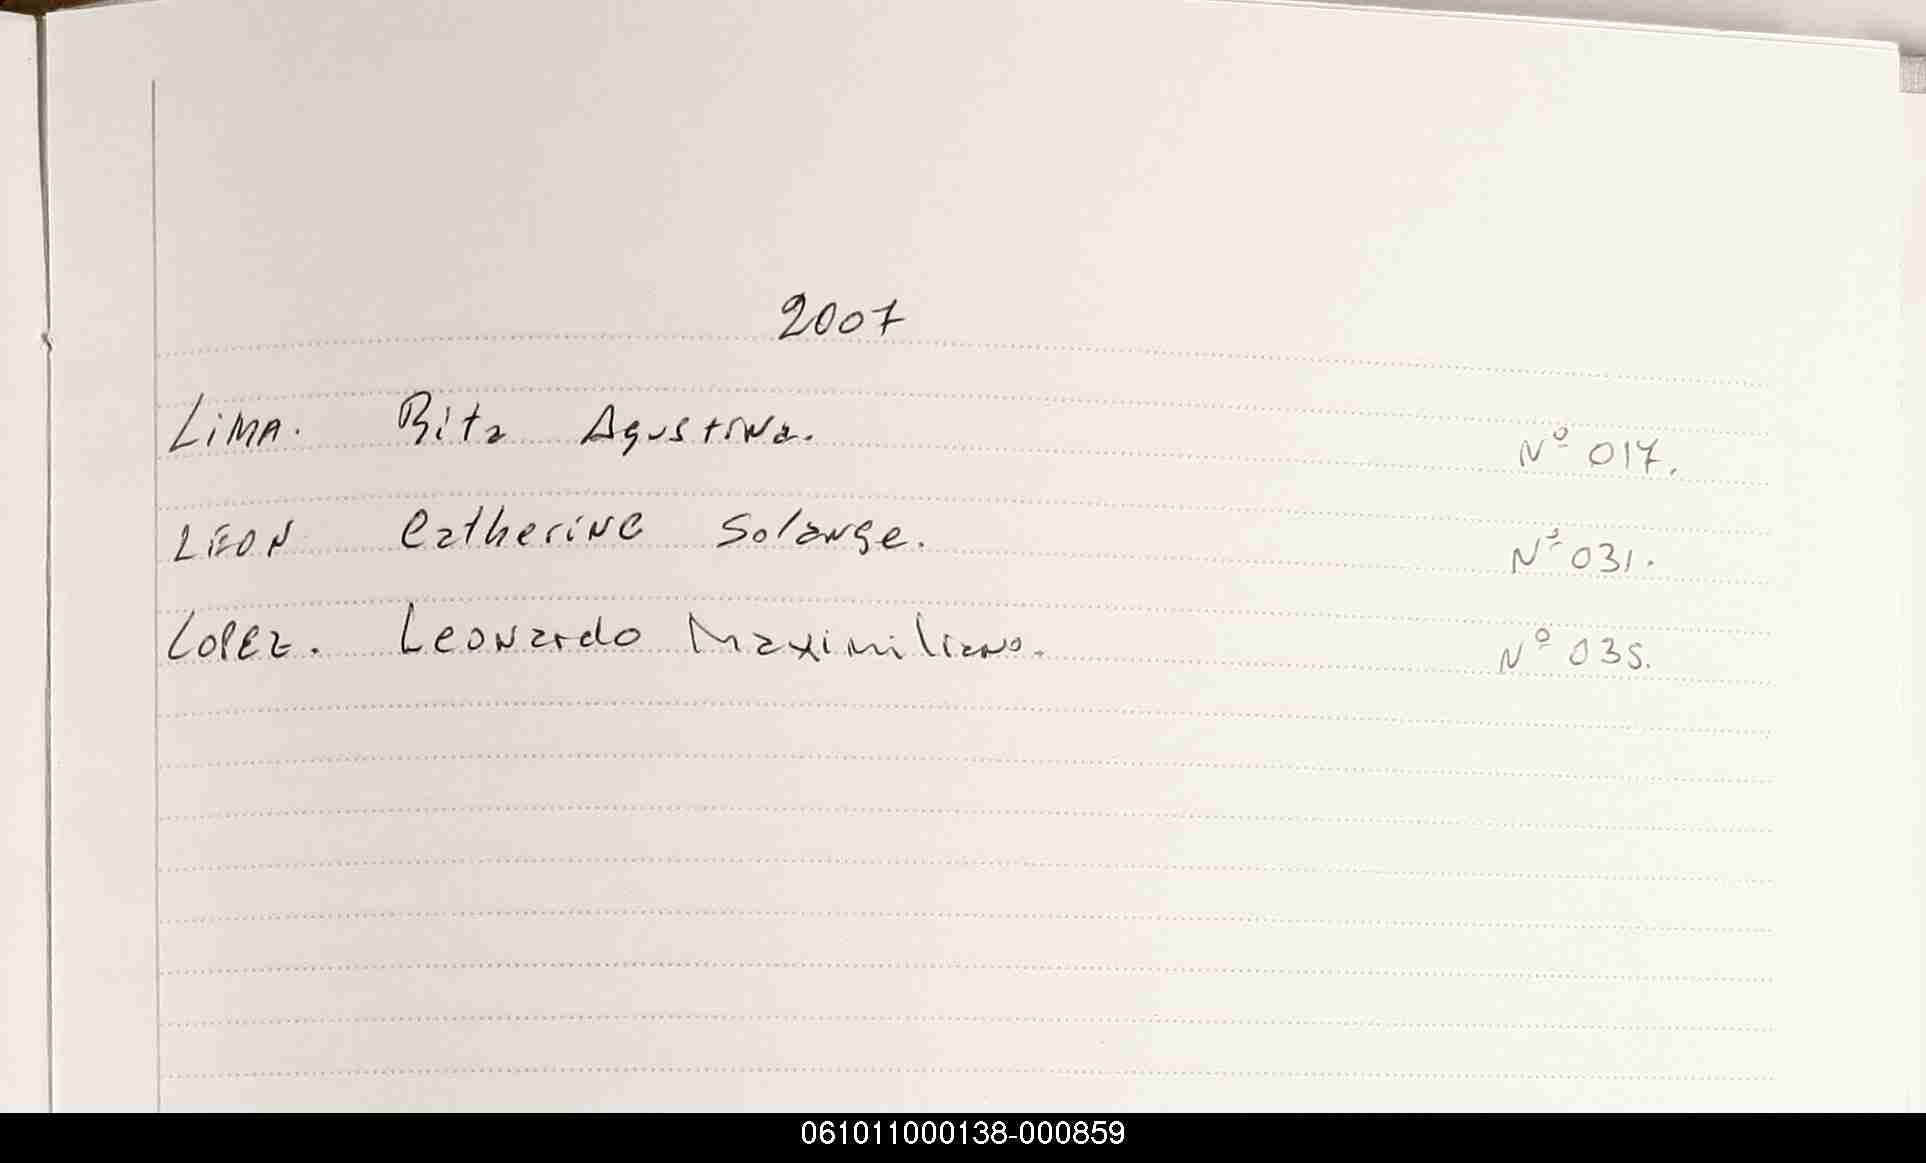 2007
LiMA. Rita Agustina. Nº 017.
LEON Catherine Solange. Nº 031.
LOPEZ. Leonardo Maximiliano. Nº 035.
061011000138-000859